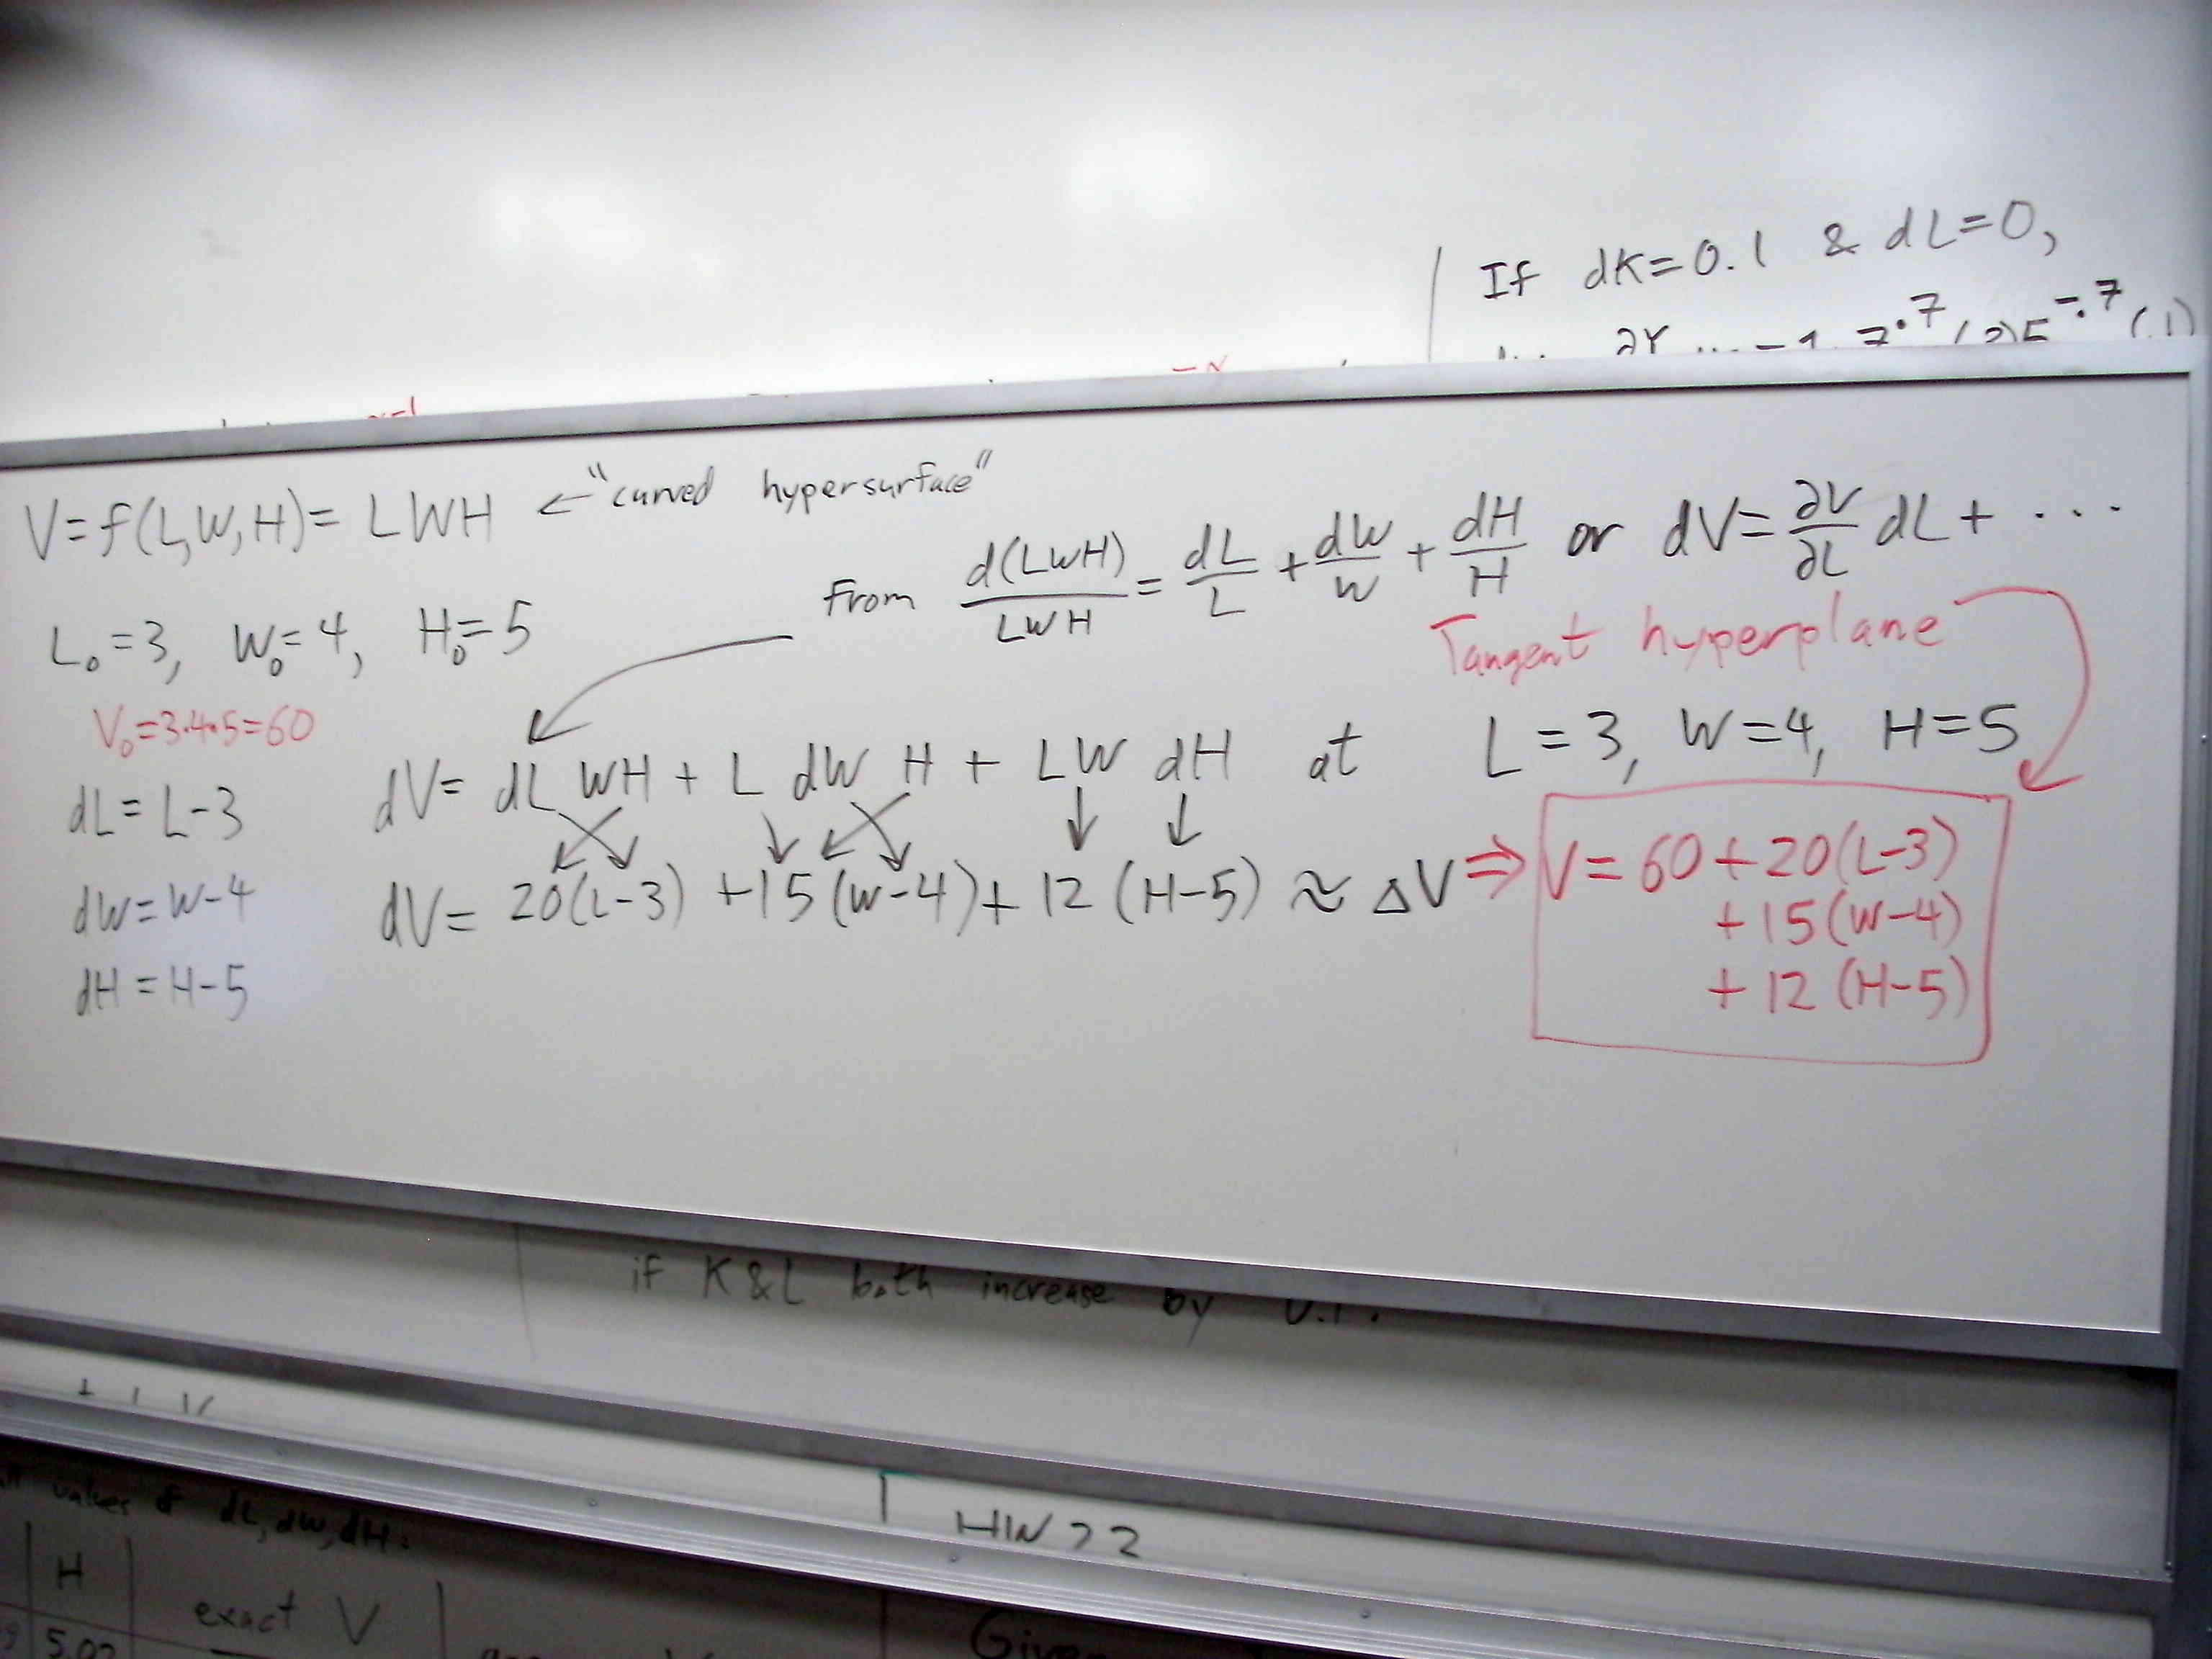 If dK=0.1 & dL=0,
V=f(L,W,H)= LWH ← "curved hypersurface"
From d(LWH)/LWH = dL/L + dW/W + dH/H or dV= ∂V/∂L dL + ...
L₀=3, W₀=4, H₀=5
Tangent hyperplane
V₀=3·4·5=60
dV= dL WH + L dW H + LW dH at L=3, W=4, H=5
dL= L-3
dV= 20(L-3) +15(W-4)+ 12(H-5) ≈ ΔV ⇒ V= 60+20(L-3)
+15(W-4)
+12(H-5)
dW=W-4
dH=H-5
if K&L both increase by 0.1.
values of dL, dW, dH.
HW 22
H
exact V
5.02
Given